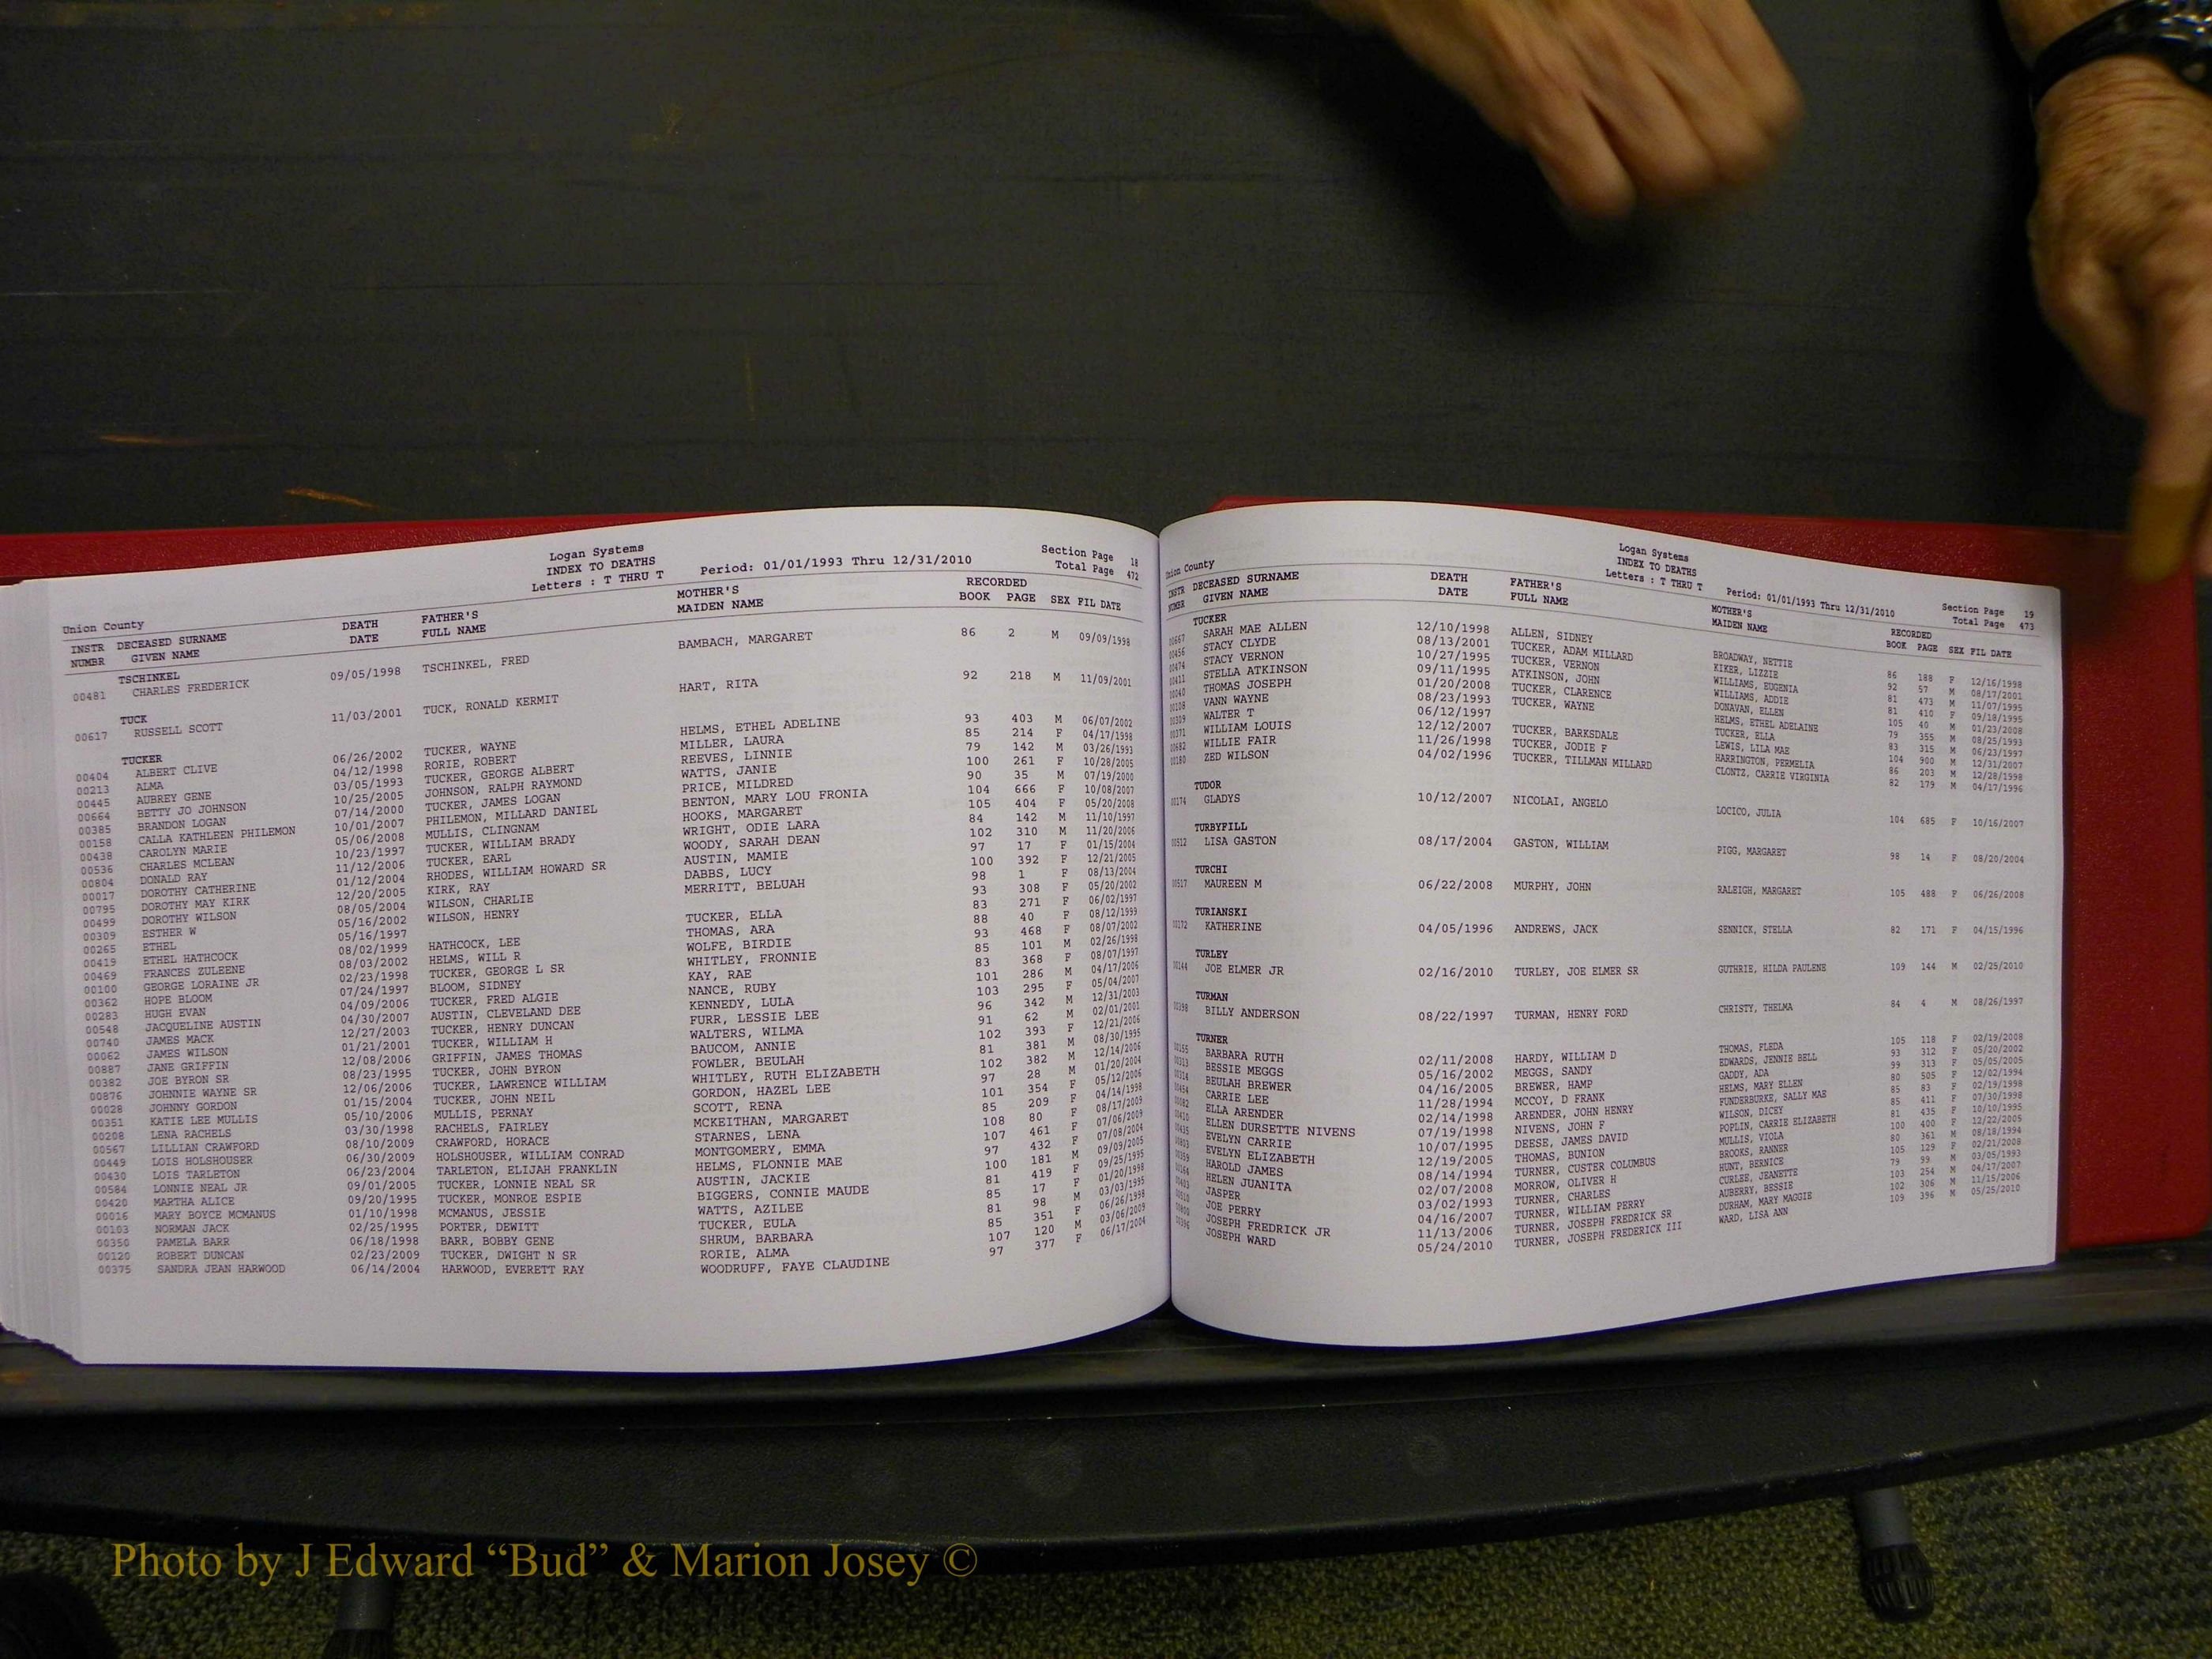 Union County
Logan Systems
INDEX TO DEATHS
Letters : T THRU T Period: 01/01/1993 Thru 12/31/2010
Section Page 18
Total Page 472
INSTR DECEASED SURNAME DEATH FATHER'S MOTHER'S RECORDED
NUMBR GIVEN NAME DATE FULL NAME MAIDEN NAME BOOK PAGE SEX FIL DATE
TSCHINKEL
00481 CHARLES FREDERICK 09/05/1998 TSCHINKEL, FRED BAMBACH, MARGARET 86 2 M 09/09/1998
TUCK
00617 RUSSELL SCOTT 11/03/2001 TUCK, RONALD KERMIT HART, RITA 92 218 M 11/09/2001
TUCKER
00404 ALBERT CLIVE 06/26/2002 TUCKER, WAYNE HELMS, ETHEL ADELINE 93 403 M 06/07/2002
00213 ALMA 04/12/1998 RORIE, ROBERT MILLER, LAURA 85 214 F 04/17/1998
00445 AUBREY GENE 03/05/1993 TUCKER, GEORGE ALBERT REEVES, LINNIE 79 142 M 03/26/1993
00664 BETTY JO JOHNSON 10/25/2005 JOHNSON, RALPH RAYMOND WATTS, JANIE 100 261 F 10/28/2005
00385 BRANDON LOGAN 07/14/2000 TUCKER, JAMES LOGAN PRICE, MILDRED 90 35 M 07/19/2000
00158 CALLA KATHLEEN PHILEMON 10/01/2007 PHILEMON, MILLARD DANIEL BENTON, MARY LOU FRONIA 104 666 F 10/08/2007
00438 CAROLYN MARIE 05/06/2008 MULLIS, CLINGNAM HOOKS, MARGARET 105 404 F 05/20/2008
00536 CHARLES MCLEAN 10/23/1997 TUCKER, WILLIAM BRADY WRIGHT, ODIE LARA 84 142 M 11/10/1997
00804 DONALD RAY 11/12/2006 TUCKER, EARL WOODY, SARAH DEAN 102 310 M 11/20/2006
00017 DOROTHY CATHERINE 01/12/2004 RHODES, WILLIAM HOWARD SR AUSTIN, MAMIE 97 17 F 01/15/2004
00795 DOROTHY MAY KIRK 12/20/2005 KIRK, RAY DABBS, LUCY 100 392 F 12/21/2005
00499 DOROTHY WILSON 08/05/2004 WILSON, CHARLIE MERRITT, BELUAH 98 1 F 08/13/2004
00309 ESTHER W 05/16/2002 WILSON, HENRY 93 308 F 05/20/2002
00265 ETHEL 05/16/1997 TUCKER, ELLA 83 271 F 06/02/1997
00419 ETHEL HATHCOCK 08/02/1999 HATHCOCK, LEE THOMAS, ARA 88 40 F 08/12/1999
00469 FRANCES ZULEENE 08/03/2002 HELMS, WILL R WOLFE, BIRDIE 93 468 F 08/07/2002
00100 GEORGE LORAINE JR 02/23/1998 TUCKER, GEORGE L SR WHITLEY, FRONNIE 85 101 M 02/26/1998
00362 HOPE BLOOM 07/24/1997 BLOOM, SIDNEY KAY, RAE 83 368 F 08/07/1997
00283 HUGH EVAN 04/09/2006 TUCKER, FRED ALGIE NANCE, RUBY 101 286 M 04/17/2006
00548 JACQUELINE AUSTIN 04/30/2007 AUSTIN, CLEVELAND DEE KENNEDY, LULA 103 295 F 05/04/2007
00740 JAMES MACK 12/27/2003 TUCKER, HENRY DUNCAN FURR, LESSIE LEE 96 342 M 12/31/2003
00062 JAMES WILSON 01/21/2001 TUCKER, WILLIAM H WALTERS, WILMA 91 62 M 02/01/2001
00887 JANE GRIFFIN 12/08/2006 GRIFFIN, JAMES THOMAS BAUCOM, ANNIE 102 393 F 12/21/2006
00382 JOE BYRON SR 08/23/1995 TUCKER, JOHN BYRON FOWLER, BEULAH 81 381 M 08/30/1995
00876 JOHNNIE WAYNE SR 12/06/2006 TUCKER, LAWRENCE WILLIAM WHITLEY, RUTH ELIZABETH 102 382 M 12/14/2006
00028 JOHNNY GORDON 01/15/2004 TUCKER, JOHN NEIL GORDON, HAZEL LEE 97 28 M 01/20/2004
00351 KATIE LEE MULLIS 05/10/2006 MULLIS, PERNAY SCOTT, RENA 101 354 F 05/12/2006
00208 LENA RACHELS 03/30/1998 RACHELS, FAIRLEY MCKEITHAN, MARGARET 85 209 F 04/14/1998
00567 LILLIAN CRAWFORD 08/10/2009 CRAWFORD, HORACE STARNES, LENA 108 80 F 08/17/2009
00449 LOIS HOLSHOUSER 06/30/2009 HOLSHOUSER, WILLIAM CONRAD MONTGOMERY, EMMA 107 461 F 07/06/2009
00430 LOIS TARLETON 06/23/2004 TARLETON, ELIJAH FRANKLIN HELMS, FLONNIE MAE 97 432 F 07/08/2004
00584 LONNIE NEAL JR 09/01/2005 TUCKER, LONNIE NEAL SR AUSTIN, JACKIE 100 181 M 09/09/2005
00420 MARTHA ALICE 09/20/1995 TUCKER, MONROE ESPIE BIGGERS, CONNIE MAUDE 81 419 F 09/25/1995
00016 MARY BOYCE MCMANUS 01/10/1998 MCMANUS, JESSIE WATTS, AZILEE 85 17 F 01/20/1998
00103 NORMAN JACK 02/25/1995 PORTER, DEWITT TUCKER, EULA 81 98 M 03/03/1995
00350 PAMELA BARR 06/18/1998 BARR, BOBBY GENE SHRUM, BARBARA 85 351 F 06/26/1998
00120 ROBERT DUNCAN 02/23/2009 TUCKER, DWIGHT N SR RORIE, ALMA 107 120 M 03/06/2009
00375 SANDRA JEAN HARWOOD 06/14/2004 HARWOOD, EVERETT RAY WOODRUFF, FAYE CLAUDINE 97 377 F 06/17/2004
Union County
Logan Systems
INDEX TO DEATHS
Letters : T THRU T Period: 01/01/1993 Thru 12/31/2010
Section Page 19
Total Page 473
INSTR DECEASED SURNAME DEATH FATHER'S MOTHER'S RECORDED
NUMBR GIVEN NAME DATE FULL NAME MAIDEN NAME BOOK PAGE SEX FIL DATE
TUCKER
00667 SARAH MAE ALLEN 12/10/1998 ALLEN, SIDNEY BROADWAY, NETTIE 86 188 F 12/16/1998
00456 STACY CLYDE 08/13/2001 TUCKER, ADAM MILLARD KIKER, LIZZIE 92 57 M 08/17/2001
00474 STACY VERNON 10/27/1995 TUCKER, VERNON WILLIAMS, EUGENIA 81 473 M 11/07/1995
00411 STELLA ATKINSON 09/11/1995 ATKINSON, JOHN WILLIAMS, ADDIE 81 410 F 09/18/1995
00040 THOMAS JOSEPH 01/20/2008 TUCKER, CLARENCE DONAVAN, ELLEN 105 40 M 01/23/2008
00108 VANN WAYNE 08/23/1993 TUCKER, WAYNE HELMS, ETHEL ADELAINE 79 355 M 08/25/1993
00309 WALTER T 06/12/1997 TUCKER, ELLA 83 315 M 06/23/1997
00371 WILLIAM LOUIS 12/12/2007 TUCKER, BARKSDALE LEWIS, LILA MAE 104 900 M 12/31/2007
00682 WILLIE FAIR 11/26/1998 TUCKER, JODIE F HARRINGTON, PERMELIA 86 203 M 12/28/1998
00180 ZED WILSON 04/02/1996 TUCKER, TILLMAN MILLARD CLONTZ, CARRIE VIRGINIA 82 179 M 04/17/1996
TUDOR
00174 GLADYS 10/12/2007 NICOLAI, ANGELO LOCICO, JULIA 104 685 F 10/16/2007
TURBYFILL
00512 LISA GASTON 08/17/2004 GASTON, WILLIAM PIGG, MARGARET 98 14 F 08/20/2004
TURCHI
00517 MAUREEN M 06/22/2008 MURPHY, JOHN RALEIGH, MARGARET 105 488 F 06/26/2008
TURIANSKI
00172 KATHERINE 04/05/1996 ANDREWS, JACK SENNICK, STELLA 82 171 F 04/15/1996
TURLEY
00144 JOE ELMER JR 02/16/2010 TURLEY, JOE ELMER SR GUTHRIE, HILDA PAULENE 109 144 M 02/25/2010
TURMAN
00398 BILLY ANDERSON 08/22/1997 TURMAN, HENRY FORD CHRISTY, THELMA 84 4 M 08/26/1997
TURNER
00155 BARBARA RUTH 02/11/2008 HARDY, WILLIAM D THOMAS, FLEDA 105 118 F 02/19/2008
00313 BESSIE MEGGS 05/16/2002 MEGGS, SANDY EDWARDS, JENNIE BELL 93 312 F 05/20/2002
00314 BEULAH BREWER 04/16/2005 BREWER, HAMP GADDY, ADA 99 313 F 05/05/2005
00454 CARRIE LEE 11/28/1994 MCCOY, D FRANK HELMS, MARY ELLEN 80 505 F 12/02/1994
00082 ELLA ARENDER 02/14/1998 ARENDER, JOHN HENRY FUNDERBURKE, SALLY MAE 85 83 F 02/19/1998
00410 ELLEN DURSETTE NIVENS 07/19/1998 NIVENS, JOHN F WILSON, DICEY 85 411 F 07/30/1998
00435 EVELYN CARRIE 10/07/1995 DEESE, JAMES DAVID POPLIN, CARRIE ELIZABETH 81 435 F 10/10/1995
00803 EVELYN ELIZABETH 12/19/2005 THOMAS, BUNION MULLIS, VIOLA 100 400 F 12/22/2005
00359 HAROLD JAMES 08/14/1994 TURNER, CUSTER COLUMBUS BROOKS, RANNER 80 361 M 08/18/1994
00164 HELEN JUANITA 02/07/2008 MORROW, OLIVER H HUNT, BERNICE 105 129 F 02/21/2008
00403 JASPER 03/02/1993 TURNER, CHARLES CURLEE, JEANETTE 79 99 M 03/05/1993
JOE PERRY 04/16/2007 TURNER, WILLIAM PERRY AUBERRY, BESSIE 103 254 M 04/17/2007
00800 JOSEPH FREDRICK JR 11/13/2006 TURNER, JOSEPH FREDRICK SR DURHAM, MARY MAGGIE 102 306 M 11/15/2006
00396 JOSEPH WARD 05/24/2010 TURNER, JOSEPH FREDERICK III WARD, LISA ANN 109 396 M 05/25/2010
Photo by J Edward “Bud” & Marion Josey ©